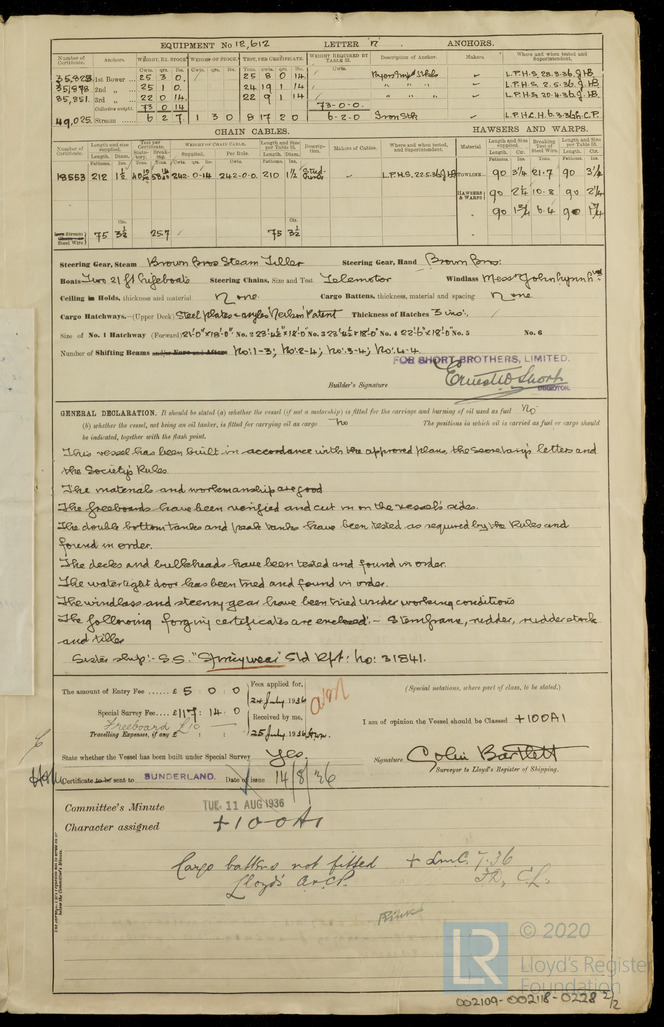 EQUIPMENT No 12,612 LETTER "r" ANCHORS.
Number of Certificate. Anchors. WEIGHT, EX. STOCK WEIGHT OF STOCK. TEST, PER CERTIFICATE. WEIGHT REQUIRED BY TABLE 31. Description of Anchor. Makers. Where and when tested and Superintendent.
35,828 1st Bower 25 3 0. 25 8 0 14 L.P.H.S. 28.3.36.
35,878 2nd " 25 1 0. 24 19 1 14 " " " L.P.H.S. 2.5.36.
35,851 3rd " 22 0 14 22 9 1 14 " " " L.P.H.S. 20.4.36.
Collective weight. 73 0 14 73-0-0.
49,025 Stream 6 2 7 1 3 0 8 17 2 0 6-2-0
CHAIN CABLES. HAWSERS AND WARPS.
Number of Certificate. Length and size supplied. Test per Certificate. WEIGHT OF CHAIN CABLE. Length and Size per Table 31. Description. Makers of Cables. Where and when tested, and Superintendent. Material Length and Size supplied. Breaking Test of Steel Wire. Length and Size per Table 31.
18553 212 242-0-14 242-0-0. 210 L.P.H.S. 22.5.36 TOWLINE 90 3¼ 21.7 90 3¼
HAWSERS & WARPS 90 2¼ 10.8 90 2¼
90 1¾ 6.4 90 1¾
Stream Steel Wire 75 3½ 25.7 75 3½
Steering Gear, Steam Brown Bros Steam Tiller Steering Gear, Hand Brown Bros.
Boats Two 21 ft Lifeboats Steering Chains, Size and Test Telemotor Windlass Messrs John Lynn & Co Ltd
Ceiling in Holds, thickness and material None Cargo Battens, thickness, material and spacing None
Cargo Hatchways.—(Upper Deck) Steel plates & angles Patent Thickness of Hatches 3 ins.
Size of No. 1 Hatchway (Forward) 21'-0"x18'-0" No. 2 No. 3 No. 4 22'-6"x18'-0" No. 5 No. 6
Number of Shifting Beams and/or Fore and Afters No: 1-3; No: 2-4; No: 3-4; No: 4-4
FOR SHORT BROTHERS, LIMITED.
Builder's Signature Ernest W Short DIRECTOR.
GENERAL DECLARATION. It should be stated (a) whether the vessel (if not a motorship) is fitted for the carriage and burning of oil used as fuel No
(b) whether the vessel, not being an oil tanker, is fitted for carrying oil as cargo No The positions in which oil is carried as fuel or cargo should
be indicated, together with the flash point.
This vessel has been built in accordance with the approved plans, the Secretary's letters and
the Society's Rules
The materials and workmanship are good
The freeboards have been verified and cut in on the vessel's sides.
The double bottom tanks and peak tanks have been tested as required by the Rules and
found in order.
The decks and bulkheads have been tested and found in order.
The watertight door has been tried and found in order.
The windlass and steering gear have been tried under working conditions
The following forging certificates are enclosed:- Sternframe, rudder, rudderstock
and tiller
Sister ship:- S.S. "Springwear" Sld Rpt: No: 31841.
The amount of Entry Fee £ 5 : 0 : 0 Fees applied for, (Special notations, where part of class, to be stated.)
24 July 1936
Special Survey Fee £117 : 14 : 0 Received by me, I am of opinion the Vessel should be Classed +100A1
Freeboard £10
Travelling Expenses, if any £ 25 July 1936
State whether the Vessel has been built under Special Survey Yes. Signature Colin Bartlett
Surveyor to Lloyd's Register of Shipping.
Certificate to be sent to SUNDERLAND. Date of issue 14/8/36
Committee's Minute TUE. 11 AUG 1936
Character assigned +100A1
Cargo battens not fitted + LMC 7.36
Lloyd's A&CP. FD, CL.
© 2020
LR
Lloyd's Register
Foundation
002109-002118-0228 2/2